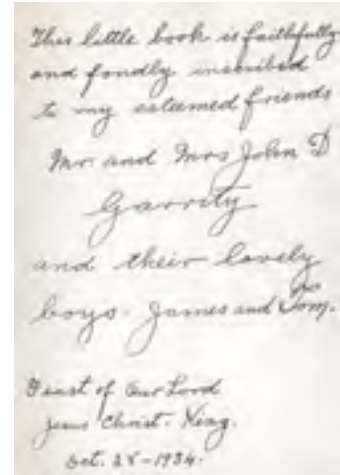 This little book is faithfully
and fondly inscribed
to my esteemed friends
Mr. and Mrs John D
Garrity
and their lovely
boys. James and Tom.
Feast of Our Lord
Jesus Christ. King.
Oct. 28-1934.